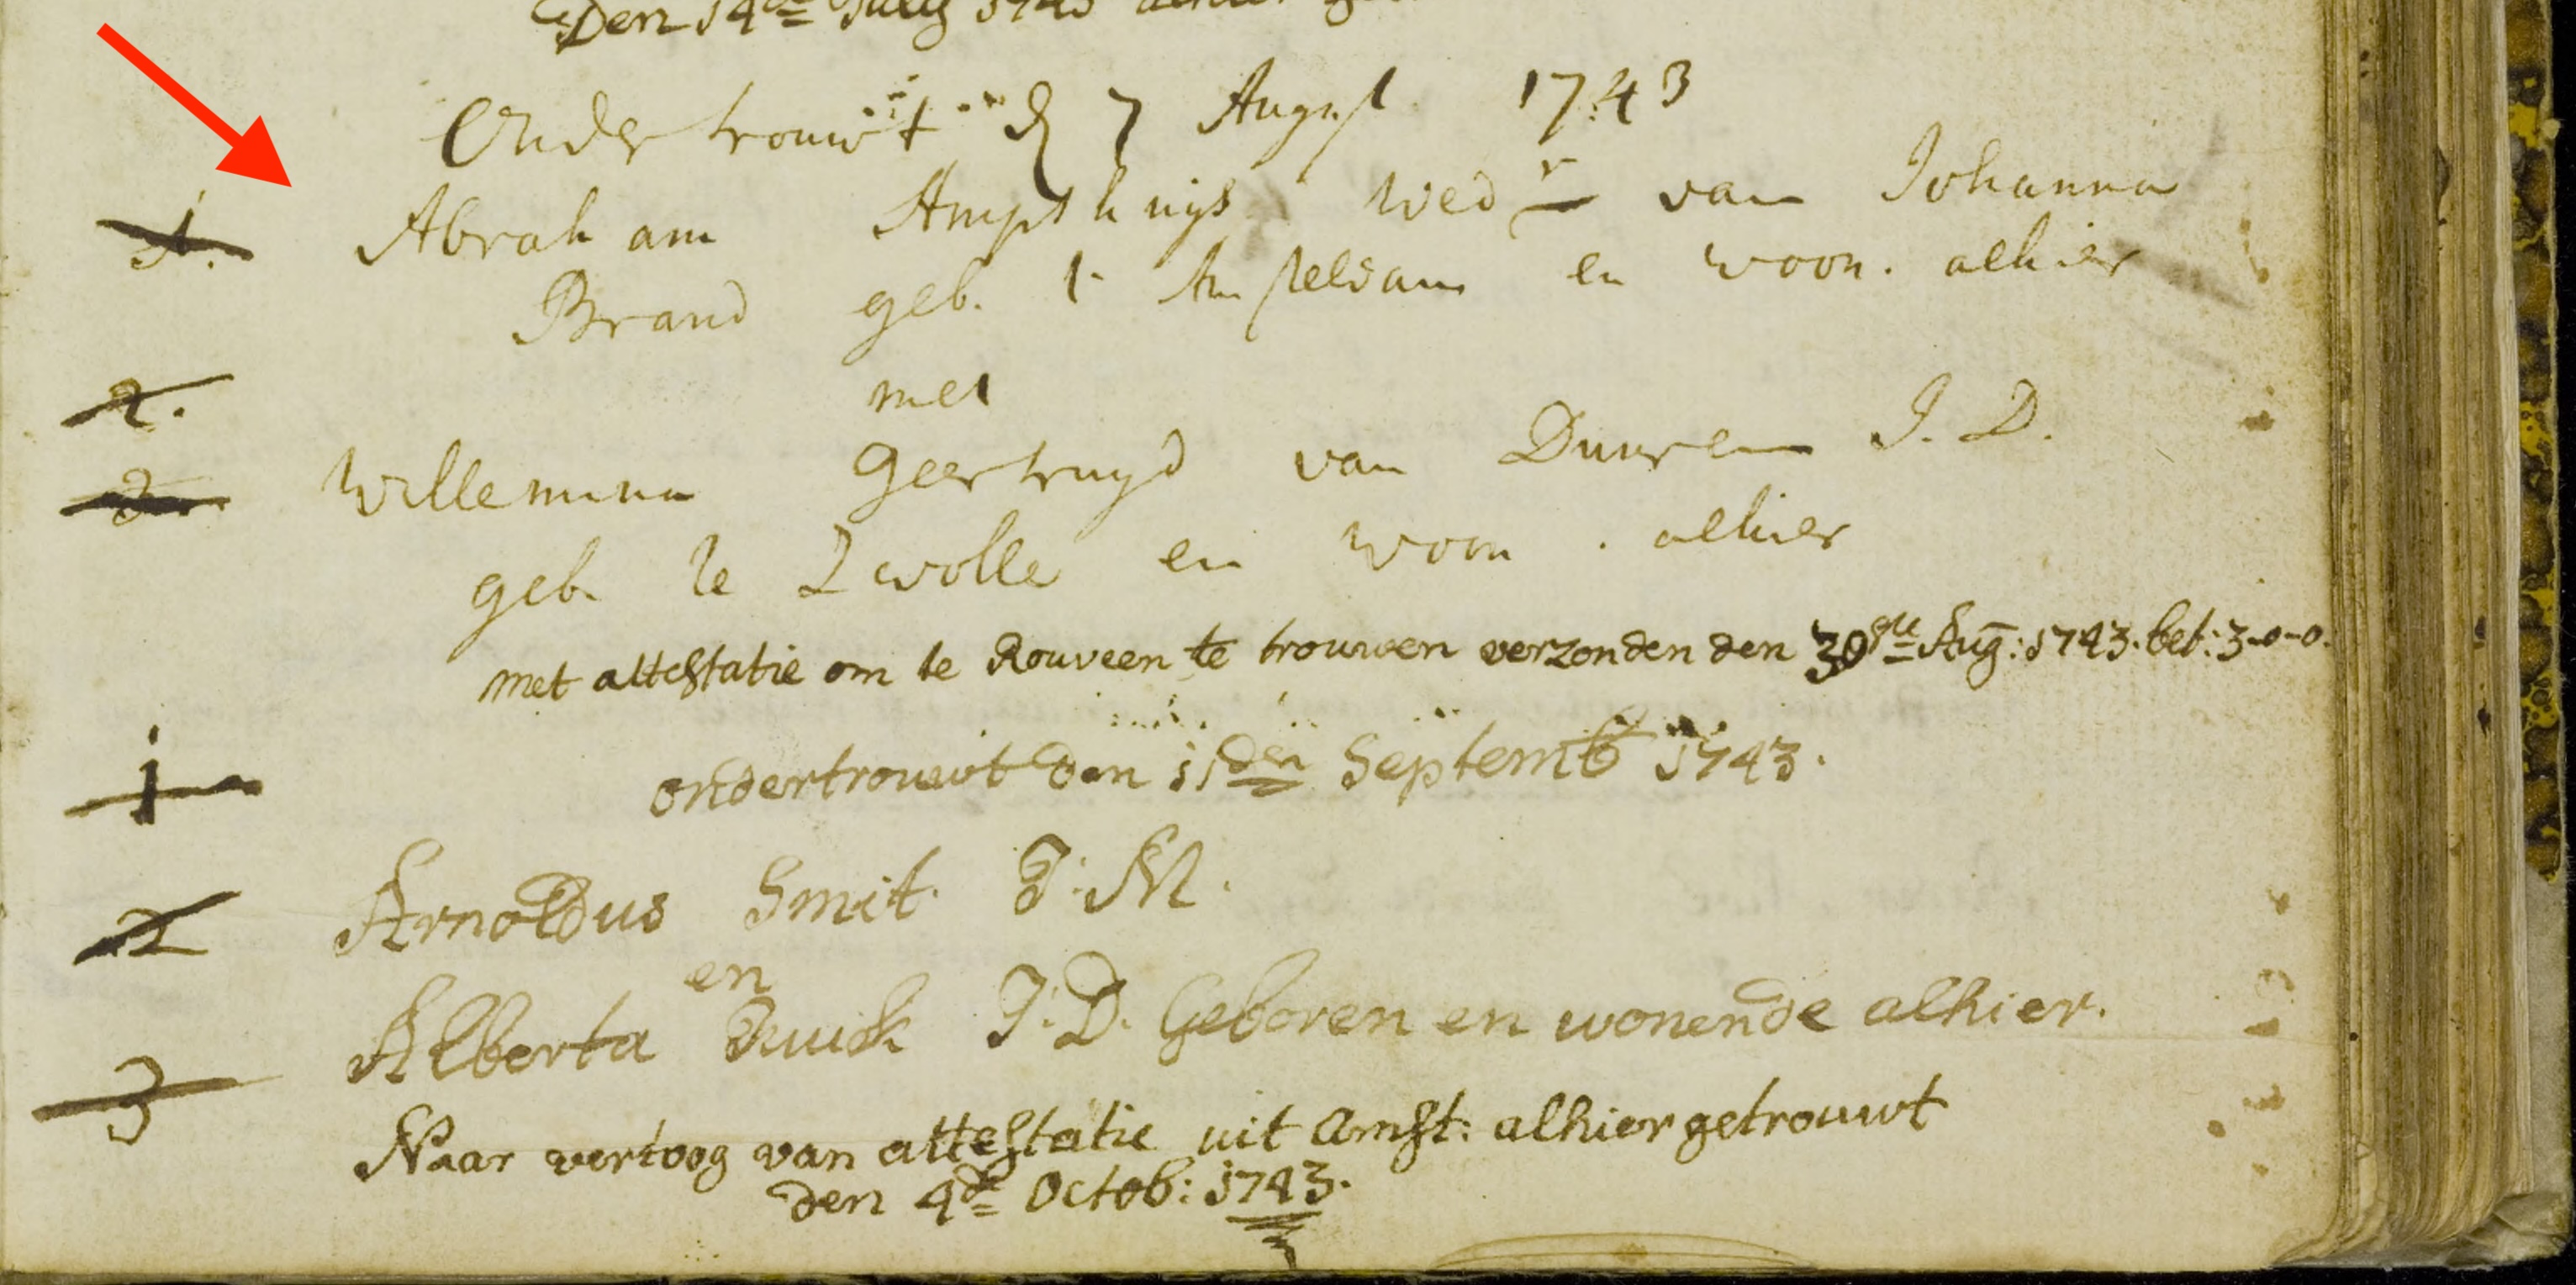 Den 14de July 1743
Ondertrouwt d 7 August 1743
1. Abraham Ampshuijs wedr van Johanna
Brand geb. t Amsteldam en woon. alhier
2. met
3. Willemina Geertruyd van Duuren J. D.
geb. te Zwolle en woon. alhier
met attestatie om te Rouveen te trouwen verzonden den 30ste Aug: 1743. bet: 3-0-0.
1 ondertrouwt den 11den Septemb 1743.
2 Arnoldus Smit. J: M.
en
Alberta J: D. Geboren en wonende alhier.
3
Naar vertoog van attestatie uit Amst: alhier getrouwt
den 4de Octob: 1743.